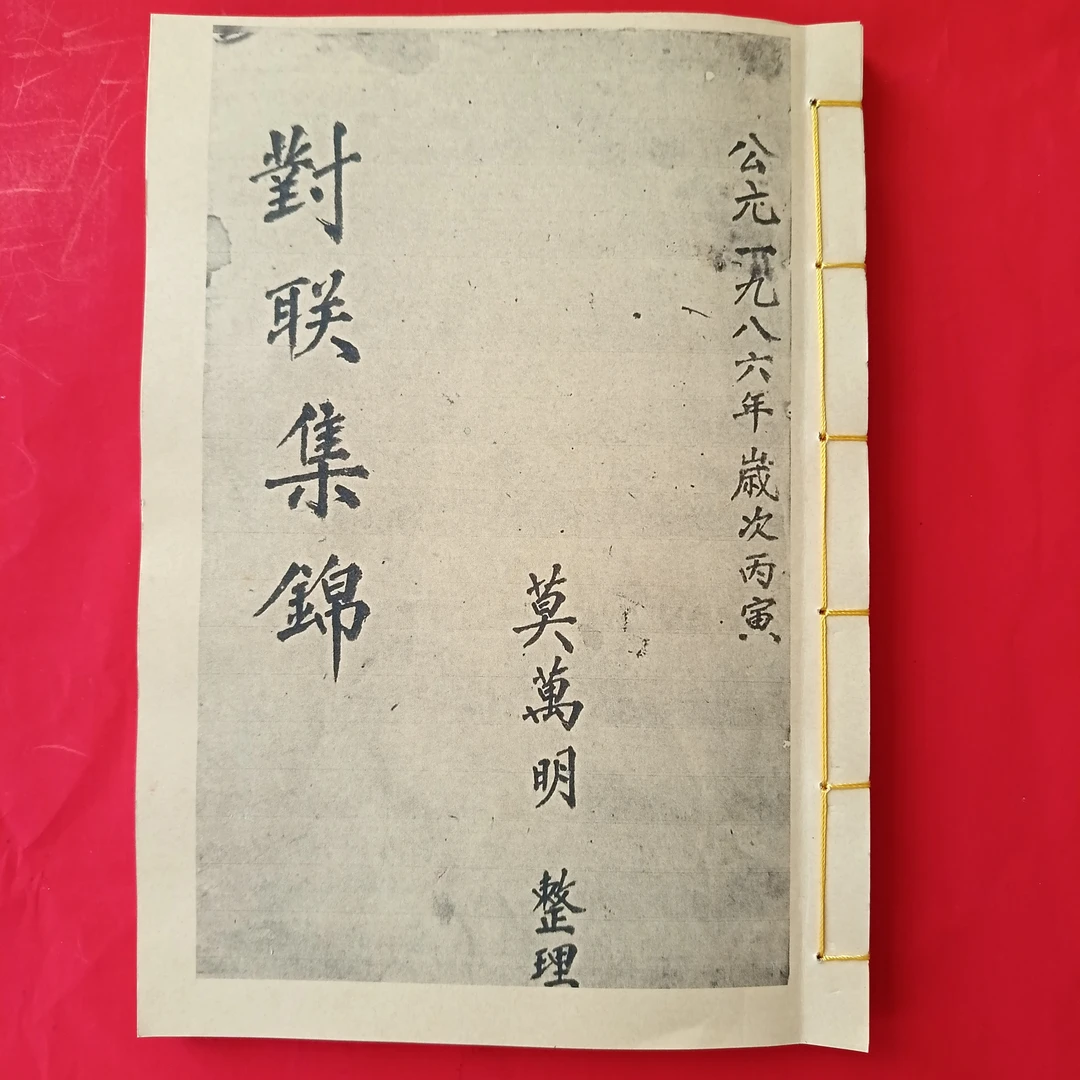 公元一九八六年歲次丙寅
莫萬明 整理
對联集錦